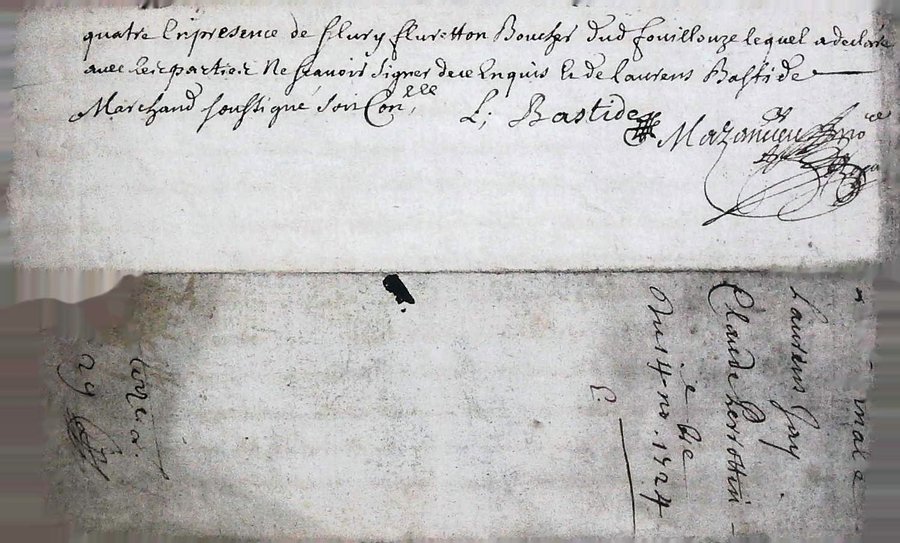 quatre Enpresence de fleury fluretton Boucher dud fouillouze lequel a declare
avec les parties Ne scavoir signer dece Enquis Et de laurens Bastide
Marchand soussigné, soit Con.lle
L; Bastide
Mazancieu
Laurens Gay
Claude Perrottin
Du 14 no. 1724
29